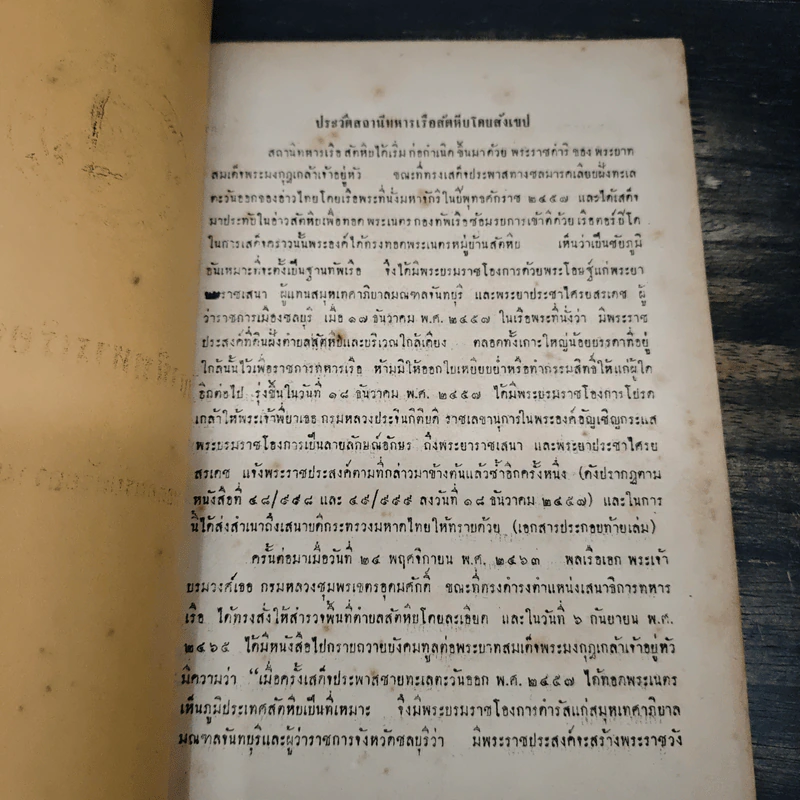 ประวัติสถานีทหารเรือสัตหีบโดยสังเขป
สถานีทหารเรือ สัตหีบได้เริ่ม ก่อกำเนิด ขึ้นมาด้วย พระราชดำริ ของ พระบาท
สมเด็จพระมงกุฎเกล้าเจ้าอยู่หัว ขณะที่ทรงเสด็จประพาสทางชลมารคเลียบฝั่งทะเล
ตะวันออกของอ่าวไทยโดยเรือพระที่นั่งมหาจักรีในปีพุทธศักราช ๒๔๕๗ และได้เสด็จ
มาประทับในอ่าวสัตหีบเพื่อทอดพระเนตร กองทัพเรือซ้อมรบการเข้าตีด้วย เรือตอร์ปิโด
ในการเสด็จคราวนั้นพระองค์ได้ทรงทอดพระเนตรหมู่บ้านสัตหีบ เห็นว่าเป็นชัยภูมิ
อันเหมาะที่จะตั้งเป็นฐานทัพเรือ จึงได้มีพระบรมราชโองการด้วยพระโอษฐ์แก่พระยา
ราชเสนา ผู้แทนสมุหเทศาภิบาลมณฑลจันทบุรี และพระยาประชาไศรยสรเดช ผู้
ว่าราชการเมืองชลบุรี เมื่อ ๑๗ ธันวาคม พ.ศ. ๒๔๕๗ ในเรือพระที่นั่งว่า มีพระราช
ประสงค์ที่ดินฝั่งตำบลสัตหีบและบริเวณใกล้เคียง ตลอดทั้งเกาะใหญ่น้อยบรรดาที่อยู่
ใกล้นั้นไว้เพื่อราชการทหารเรือ ห้ามมิให้ออกใบเหยียบย่ำหรือทำกรรมสิทธิ์ให้แก่ผู้ใด
อีกต่อไป รุ่งขึ้นในวันที่ ๑๘ ธันวาคม พ.ศ. ๒๔๕๗ ได้มีพระบรมราชโองการโปรด
เกล้าให้พระเจ้าพี่ยาเธอ กรมหลวงประจินกิติบดี ราชเลขานุการในพระองค์อัญเชิญกระแส
พระบรมราชโองการเป็นลายลักษณ์อักษร ถึงพระยาราชเสนา และพระยาประชาไศรย
สรเดช แจ้งพระราชประสงค์ตามที่กล่าวมาข้างต้นแล้วซ้ำอีกครั้งหนึ่ง (ดังปรากฏตาม
หนังสือที่ ๔๘/๕๕๘ และ ๔๙/๕๕๙ ลงวันที่ ๑๘ ธันวาคม ๒๔๕๗) และในการ
นี้ได้ส่งสำเนาถึงเสนาบดีกระทรวงมหาดไทยให้ทราบด้วย (เอกสารประกอบท้ายเล่ม)
ครั้นต่อมาเมื่อวันที่ ๒๔ พฤศจิกายน พ.ศ. ๒๔๖๓ พลเรือเอก พระเจ้า
บรมวงศ์เธอ กรมหลวงชุมพรเขตรอุดมศักดิ์ ขณะที่ทรงดำรงตำแหน่งเสนาธิการทหาร
เรือ ได้ทรงสั่งให้สำรวจพื้นที่ตำบลสัตหีบโดยละเอียด และในวันที่ ๖ กันยายน พ.ศ.
๒๔๖๕ ได้มีหนังสือไปกราบถวายบังคมทูลต่อพระบาทสมเด็จพระมงกุฎเกล้าเจ้าอยู่หัว
มีความว่า “เมื่อครั้งเสด็จประพาสชายทะเลตะวันออก พ.ศ. ๒๔๕๗ ได้ทอดพระเนตร
เห็นภูมิประเทศสัตหีบเป็นที่เหมาะ จึงมีพระบรมราชโองการดำรัสแก่สมุหเทศาภิบาล
มณฑลจันทบุรีและผู้ว่าราชการจังหวัดชลบุรีว่า มีพระราชประสงค์จะสร้างพระราชวัง